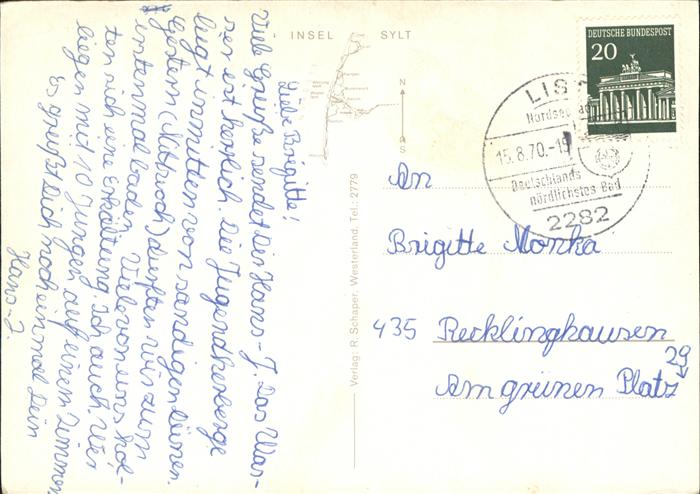 INSEL SYLT
N
S
DEUTSCHE BUNDESPOST
20
LIST
Nordseebad
15.8.70.-19
Deutschlands
nördlichstes Bad
2282
Liebe Brigitte!
Viele Grüße sendet Dir Hans-J. Das Was-
ser ist herrlich. Die Jugendherberge
liegt inmitten von sandigen Dünen.
Gestern (Mittwoch) durften wir zum
erstenmal baden. Viele von uns hol-
ten sich eine Erkältung. Ich auch. Wir
liegen mit 10 Jungen auf einem Zimmer
Es grüßt Dich noch einmal Dein
Hans-J.
Verlag: R. Schaper, Westerland, Tel.: 2779
An
Brigitte Monka
435 Recklinghausen
Am grünen Platz 29